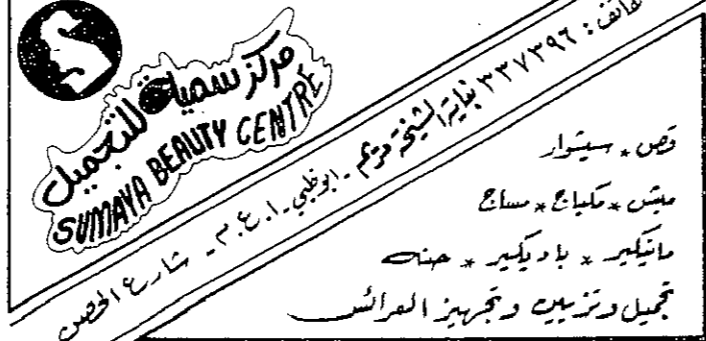 مركز سمية للتجميل
SUMAYA BEAUTY CENTRE
هاتف : ٣٣٧٣٩٦ بناية الشيخة مريم - ابوظبي - ا.ع.م - شارع الحصن
قص * سيشوار
ميش * مكياج * مساج
مانيكير * باديكير * حنه
تجميل وتزيين وتجهيز العرائس